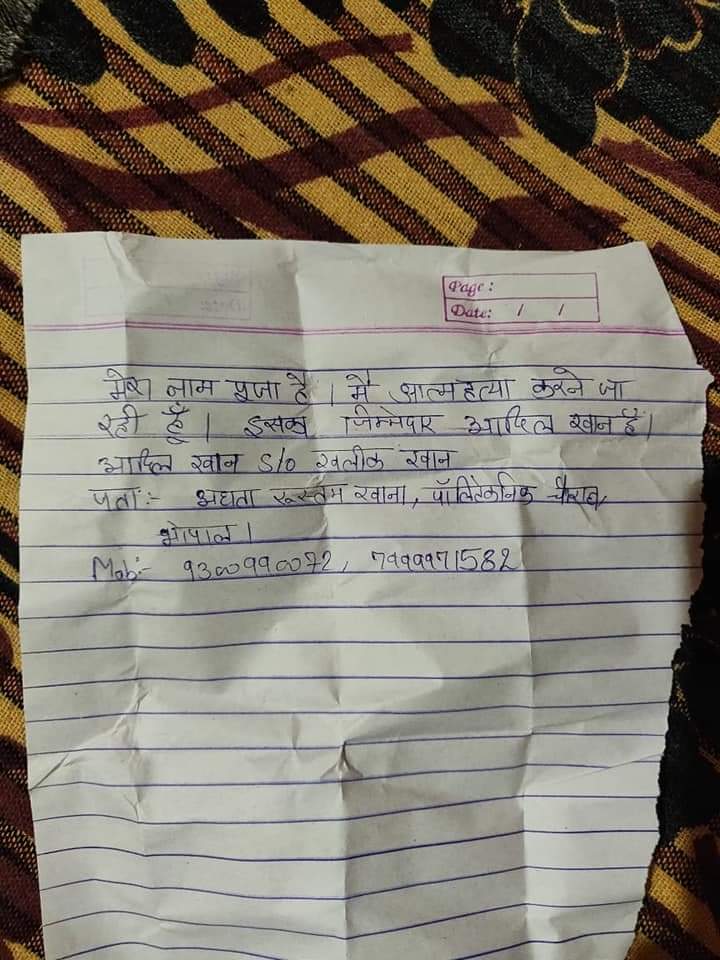 Page :
Date: / /
मेरा नाम पूजा है । मैं आत्महत्या करने जा
रही हूँ । इसका जिम्मेदार आदिल खान है।
आदिल खान S/o खलीक खान
पता:- अहाता रूस्तम खाना, पॉलिटेकनिक
भोपाल ।
Mob:- 9300990072, 7999971582